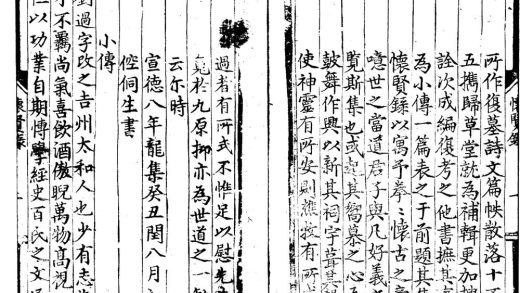 懷賢錄
所作復墓詩文篇帙散落十
五攜歸草堂就為補輯更加
詮次成編復考之他書摭其
為小傳一篇表之于前題其
懷賢錄以寓予拳〻懷古之
噫世之當道君子與凡好義
覽斯集也或起其嚮慕之心
鼓舞作興以新其祠宇葺其
使神靈有所安則樵牧有所
過者有所式不惟足以慰先
冤於九原抑亦為世道之一
云尔時
宣德八年龍集癸丑閏八月
倥侗生書
小傳
劉過字改之吉州太和人也少有志
不羈尚氣喜飲酒傲睨萬物高視
以功業自期慱學經史百氏之文
懷賢錄